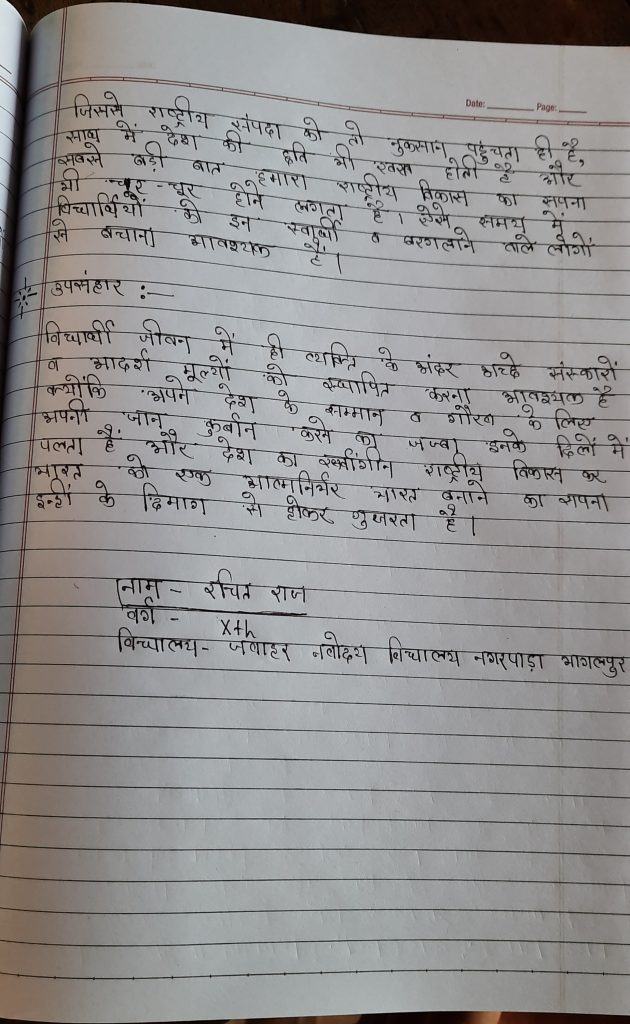 Date: ________ Page: ____
जिससे राष्ट्रीय संपदा को तो नुकसान पहुंचता ही है,
साथ में देश की छवि भी खराब होती है और
सबसे बड़ी बात हमारा राष्ट्रीय विकास का सपना
भी चूर-चूर होने लगता है। ऐसे समय में
विद्यार्थियों को इन स्वार्थी व बरगलाने वाले लोगों
से बचाना आवश्यक है।
उपसंहार :—
विद्यार्थी जीवन में ही व्यक्ति के अंदर अच्छे संस्कारों
व आदर्श मूल्यों को स्थापित करना आवश्यक है
क्योंकि अपने देश के सम्मान व गौरव के लिए
अपनी जान कुर्बान करने का जज्बा इनके दिलों में
पलता है और देश का राष्ट्रीय विकास कर
भारत को एक आत्मनिर्भर भारत बनाने का सपना
इन्हीं के दिमाग से होकर गुजरता है।
नाम - रचित राज
वर्ग - Xth
विद्यालय- जवाहर नवोदय विद्यालय नगरपाड़ा भागलपुर